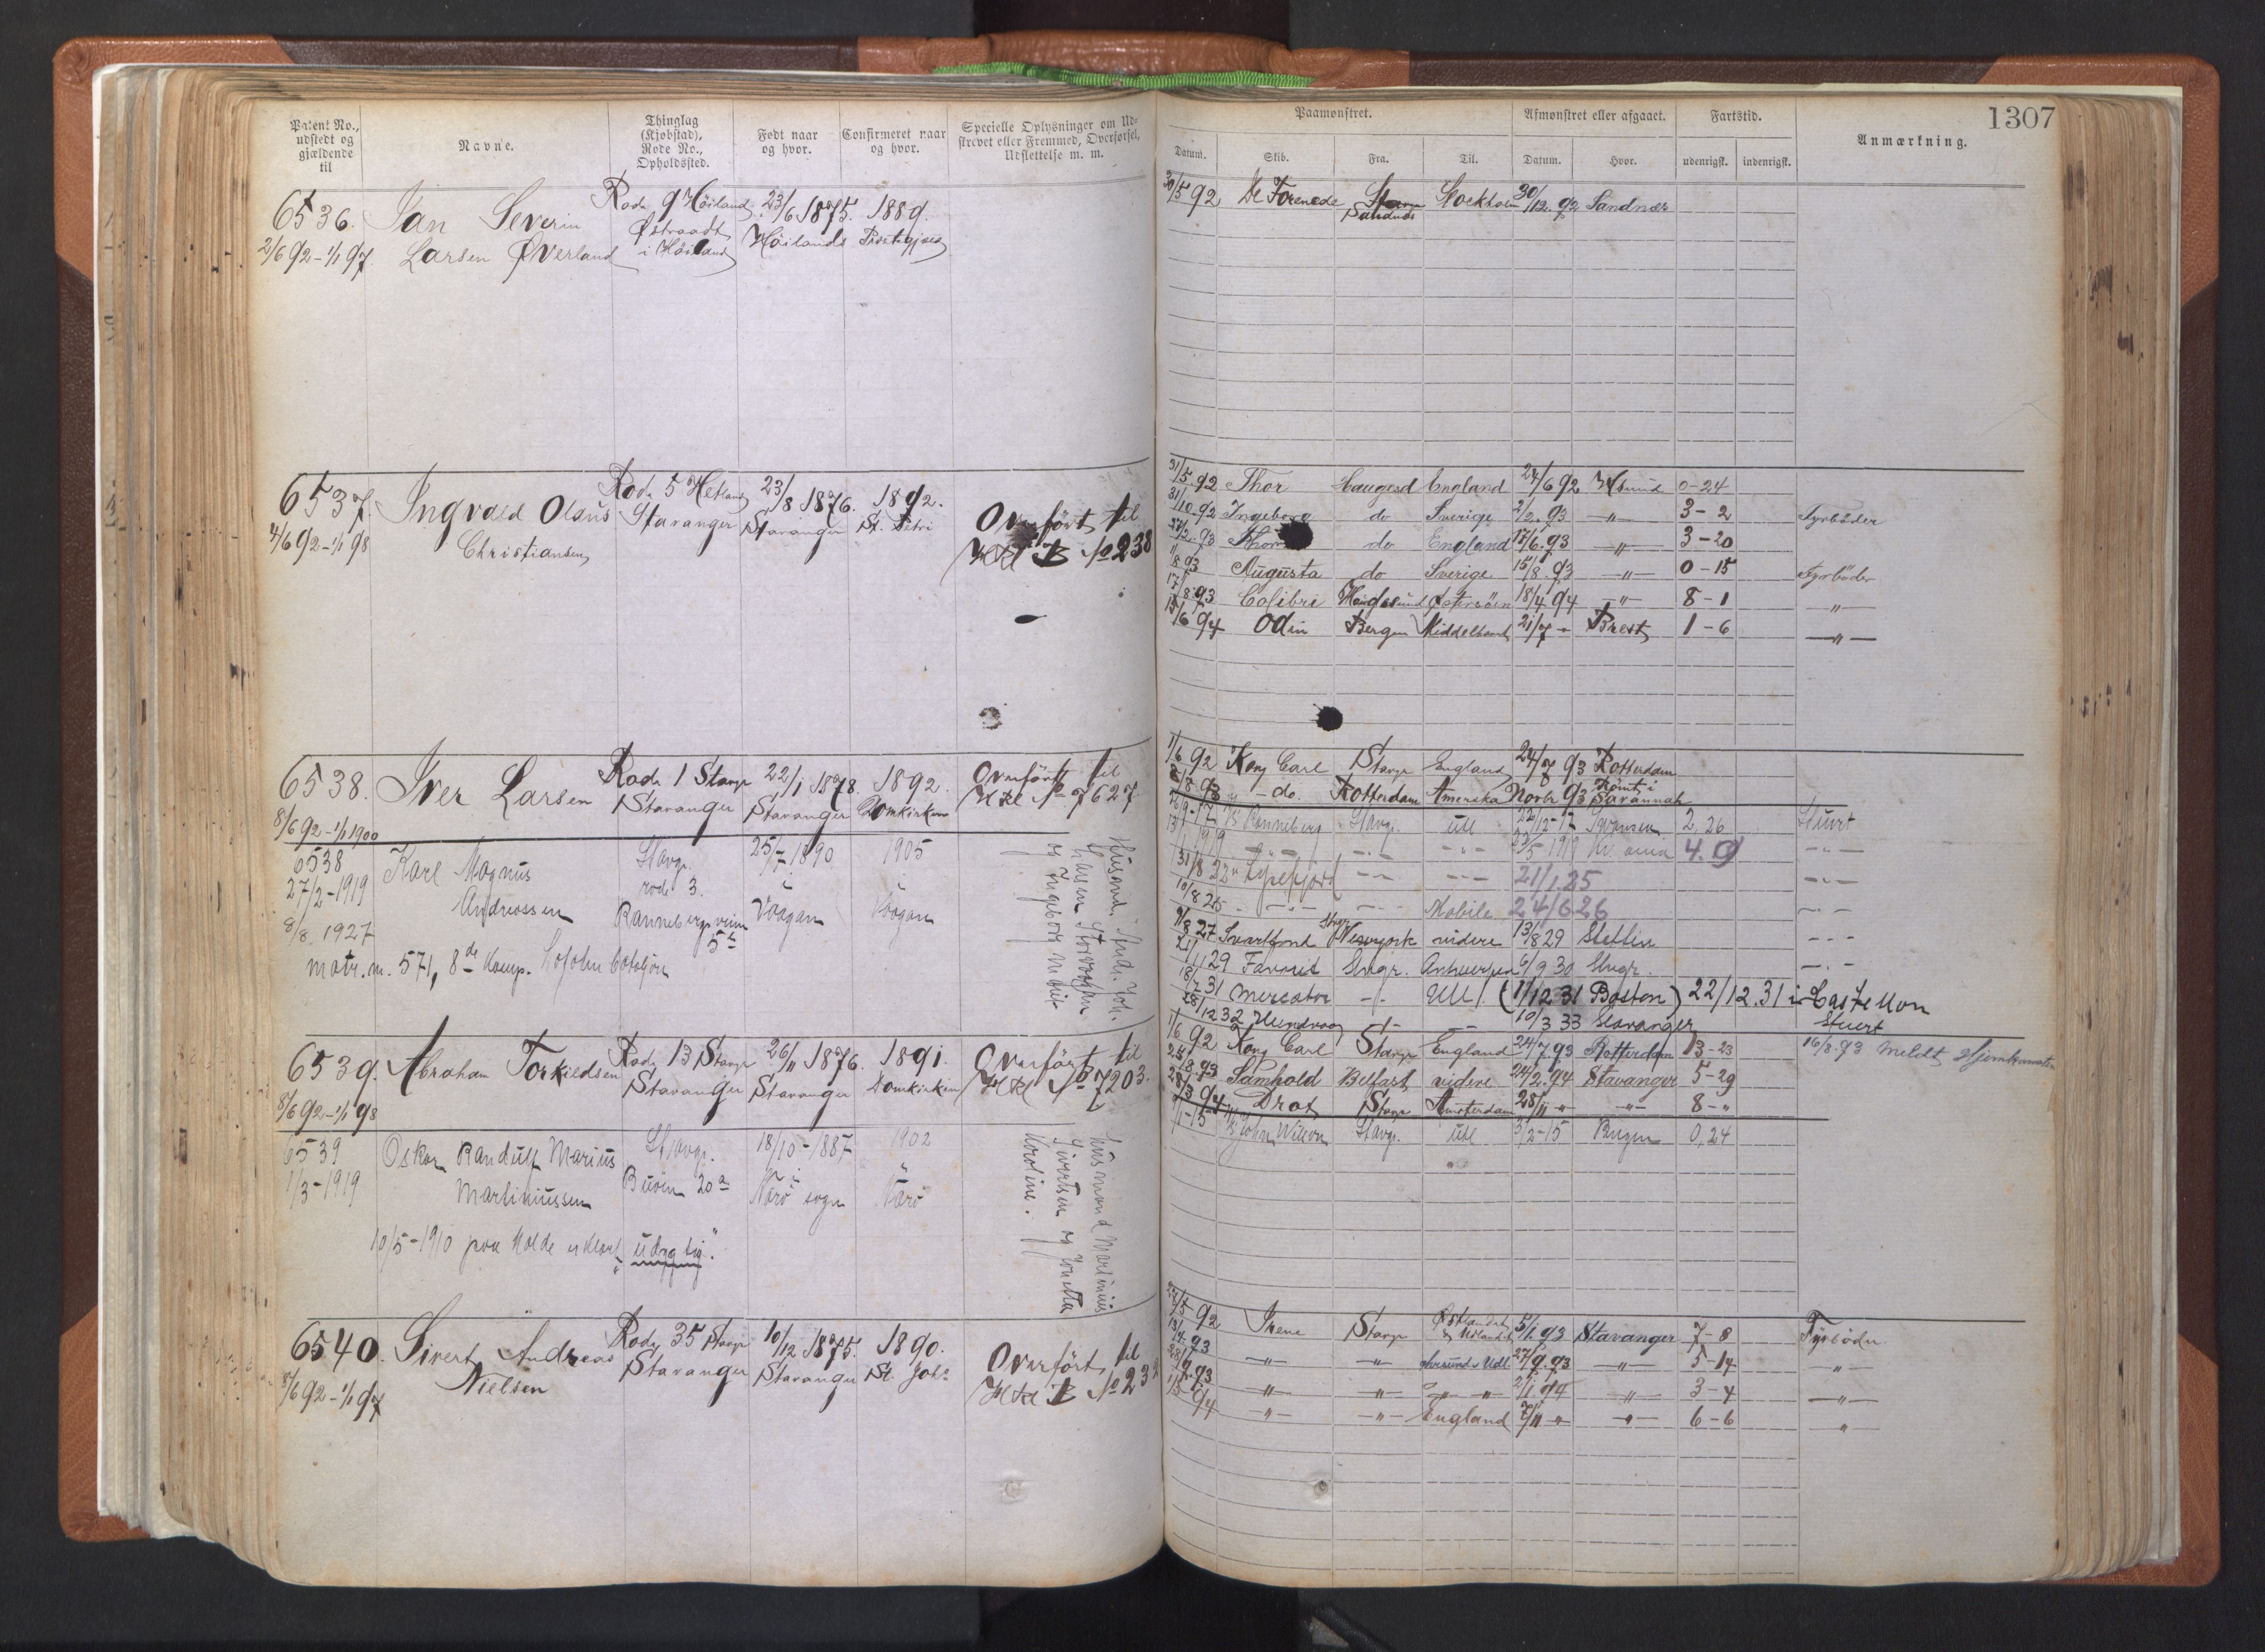 Patent No., udstedt og gjældende til
Navne.
Thinglag (Kjøbstad), Rode No., Opholdssted.
Født naar og hvor.
Confirmeret naar og hvor.
Specielle Oplysninger om Udskrevet eller Fremmed, Overførsel, Udslettelse m. m.
Paamønstret.
Afmønstret eller afgaaet.
Fartstid.
Anmærkning.
1307
Datum. Skib. Fra. Til. Datum. Hvor. udenrigsk. indenrigsk.
6536. Jan Severin Rode 9 Höiland 23/6 1875. 1889.
2/6 92 - 1/1 97. Larsen Øverland Østraadt i Höiland Höilands Præstegjæld
30/5 92 De Forenede Sandnæs Stockholm 30/12. 92 Sandnæs
6537. Ingvald Olaus Rode 5 Hetland 23/8 1876. 1892.
4/6 92 - 1/1 98 Christiansen Stavanger Stavanger St. Petri
Overfört til Hkl B No 238
31/5. 92 Thor Haugesd England 24/6 92 0-24
31/10. 92 Ingeborg do Sverige 2/2. 93 — " — 3 - 2 Fyrböder
Thor do England 17/6. 93 — " — 3 - 20
1/8 93 Augusta do Sverige 15/8. 93 — " — 0 - 15 Fyrböder
17/8. 93 Colibri Haugesund Østersöen 18/4 94 — " — 8 - 1 — " —
15/6 94 Odin Bergen Middelhavet 21/7 - Brest 1 - 6 — " —
6538. Iver Larsen Rode 1 Stavgr 22/1 1878. 1892.
8/6 92 - 1/1 1900 Stavanger Stavanger Domkirken
Overfört til Hkl No 7627
1/6 92 Kong Carl Stavgr England 24/7 93 Rotterdam
8/8 93 — do. Rotterdam Amerika Novbr 93 Römt i Savannah
0538 Karl Magnus Stavgr. 25/7 1890 1905
27/2 - 1919 Andreassen rode 3. Vaagan Vaagan
8/8. 1927 Rannebergsveien 5 b
matr. nr. 571, 8de Komp. Lofoten bataljon
Husmand Andr. Joh.
Larsen Storvaagan
og Ingeborg
Ranneberg Stavgr. Utl 22/12-17 Swansea 2, 26 Stuert
4. 9 — " —
31/8 22 Typefjord — " — — " — 21/1. 25 — " —
10/8 25 — " — — " — Mobile 24/6 26 — " —
9/8 27 Svartfond Newyork videre 13/8 29 Stettin - - -
21/1 29 Favorit Stvgr. Antwerpen 6/9 30 Stvgr. — " —
18/2 31 Mercator -/- Utl. (11/12 31 Boston) 22/12. 31 i Castellon
28/12 32 Hundvaag -/- — 10/3 33 Stavanger Stuert
6539. Abraham Torkildsen Rode 13 Stavgr 26/11 1876. 1891.
8/6 92 - 1/1 98 Stavanger Stavanger Domkirken
Overfört til Hkl No 7203.
1/6 92 Kong Carl Stavgr England 24/7. 93 Rotterdam 13 - 23 16/8. 93 meldt Hjemkomsten
8. 93 Samhold Belfast videre 24/2. 94 Stavanger 5 - 29
3 94 Drot Stavgr Amsterdam 28/11 " — " — 8 - "
6539 Oskar Randulf Marius Stavgr. 18/10 - 1887 1902
1/3 - 1919 Martiniussen Buöen 20 a Nærö sogn Nærö
10/5 - 1910 paa Molde erklært "udygtig".
Husmand Martinius
Sivertsen og
Karoline.
John Wilson Stavgr. Utl 3/2 - 15 Bergen 0, 24
6540. Sivert Andreas Rode 35 Stavgr 10/12 1875. 1890.
8/6 92 - 1/1 97 Nielsen Stavanger Stavanger St. Johs
Overfört til Hkl B No 23
27/5 92 Irene Stavgr Østlandet & Udlandet 5/1. 93 Stavanger 7 - 8 Fyrböder
— " — — " — & Udl. 27/9. 93 — " — 5 - 14 — " —
— " — — " — — " — 2/1 94 — " — 3 - 4 — " —
— " — — " — England 7/11 " — " — 6 - 6 "